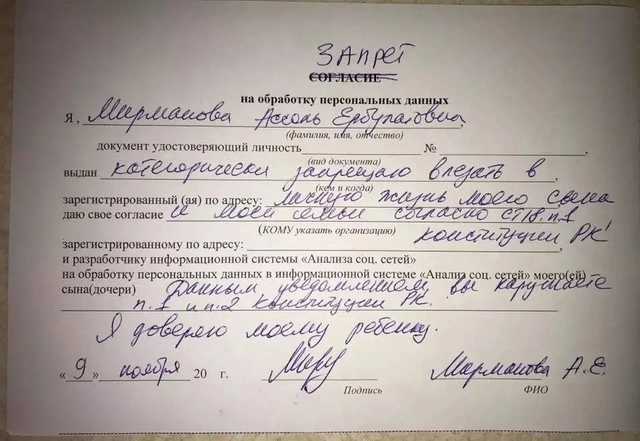 ЗАПРЕТ
СОГЛАСИЕ
на обработку персональных данных
Я , Мирманова Ассоль Ербулатовна,
(фамилия, имя, отчество)
документ удостоверяющий личность №
(вид документа)
выдан категорически запрещаю влезать в ,
(кем и когда)
зарегистрированный (ая) по адресу: личную жизнь моего сына
даю свое согласие и моей семьи согласно ст18.п.1
(КОМУ указать организацию) конституции РК!
зарегистрированному по адресу:
и разработчику информационной системы «Анализа соц. сетей»
на обработку персональных данных в информационной системе «Анализ соц. сетей» моего(ей)
сына(дочери) Данным уведомлением, вы нарушаете
п.1 и п.2 Конституции РК.
Я доверяю моему ребенку.
« 9 » ноября 20 г. Мирманова А.Е.
Подпись ФИО